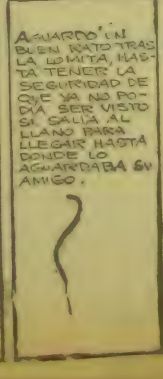 AGUARDÓ UN
BUEN RATO TRAS
LA LOMITA, HAS-
TA TENER LA
SEGURIDAD DE
QUE YA NO PO-
DÍA SER VISTO
SI SALÍA AL
LLANO PARA
LLEGAR HASTA
DONDE LO
AGUARDABA SU
AMIGO.